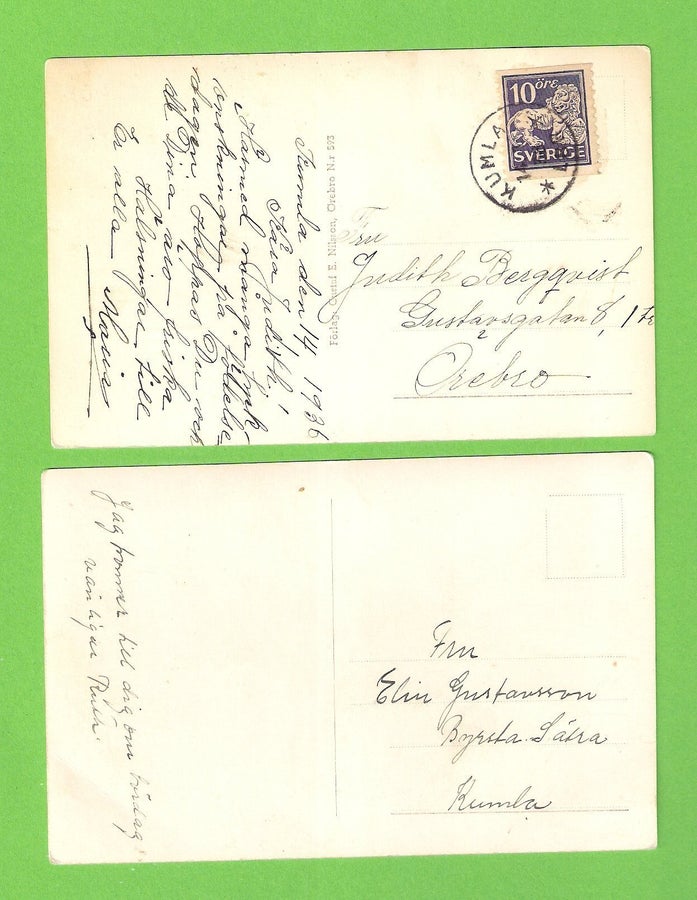 Kumla den 14/1 1936
Kära Judith!
Härmed många lyck-
önskningar på födelse-
dagen. Hoppas Du och
de Dina äro friska
Hälsningar till
Er alla Maria
Förlag: Gustaf E. Nilsson, Örebro N:r 593
10 öre
SVERIGE
KUMLA
Fru
Judith Bergqvist
Gustavsgatan 8, 1 tr
Örebro
Jag kommer till dig om lördag
vänligen Ruth.
Fru
Elin Gustavsson
Byrsta Sätra
Kumla